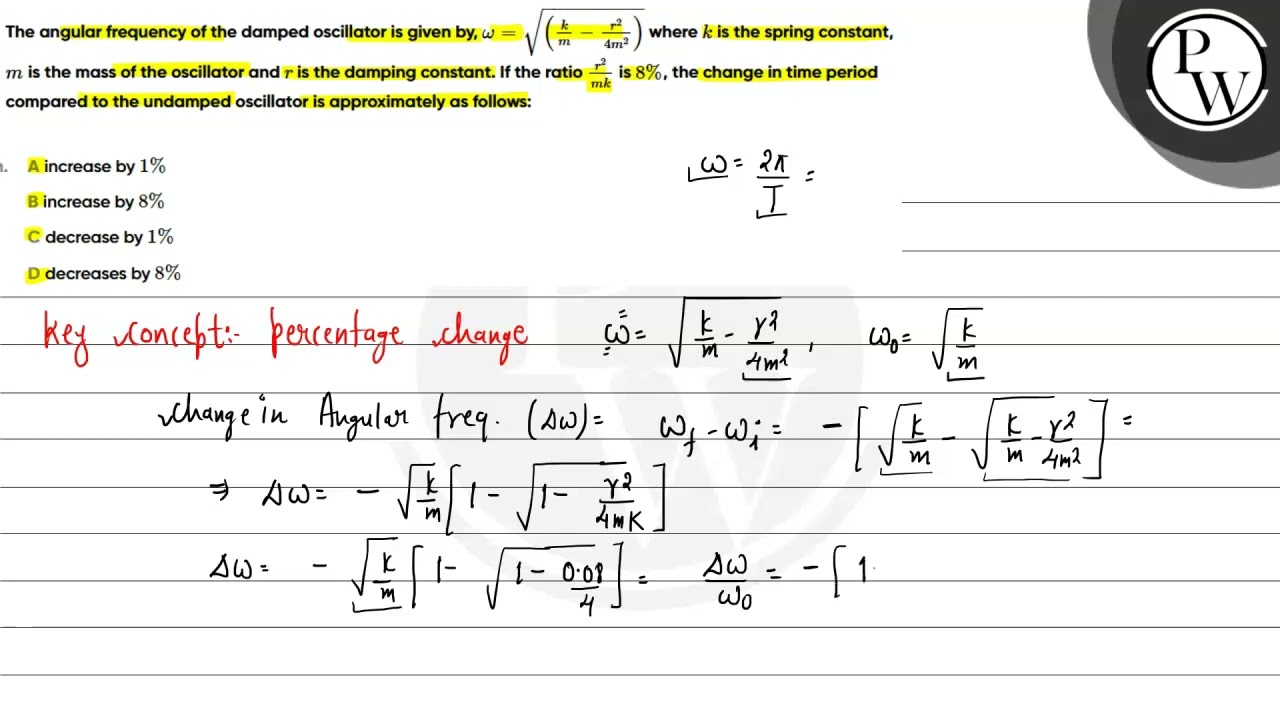 The angular frequency of the damped oscillator is given by, ω = √(k/m − r²/4m²) where k is the spring constant,
m is the mass of the oscillator and r is the damping constant. If the ratio r²/mk is 8%, the change in time period
compared to the undamped oscillator is approximately as follows:
P
W
A increase by 1%
B increase by 8%
C decrease by 1%
D decreases by 8%
ω = 2π/T =
Key concept:- percentage change ω = √(k/m − r²/4m²), ω₀ = √(k/m)
Change in Angular freq. (Δω) = ω_f − ω_i = −[√(k/m) − √(k/m − r²/4m²)] =
⇒ Δω = −√(k/m) [1 − √(1 − r²/4mK)]
Δω = −√(k/m) [1 − √(1 − 0.08/4)] = Δω/ω₀ = −[1